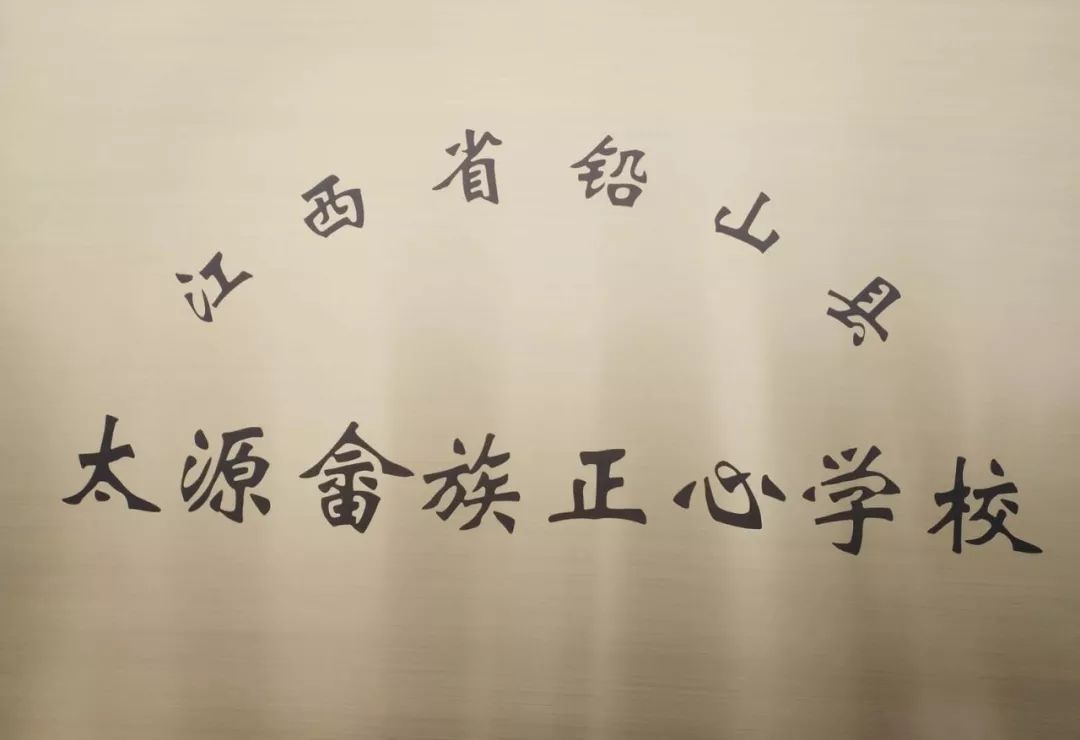 江西省铅山县
太源畲族正心学校